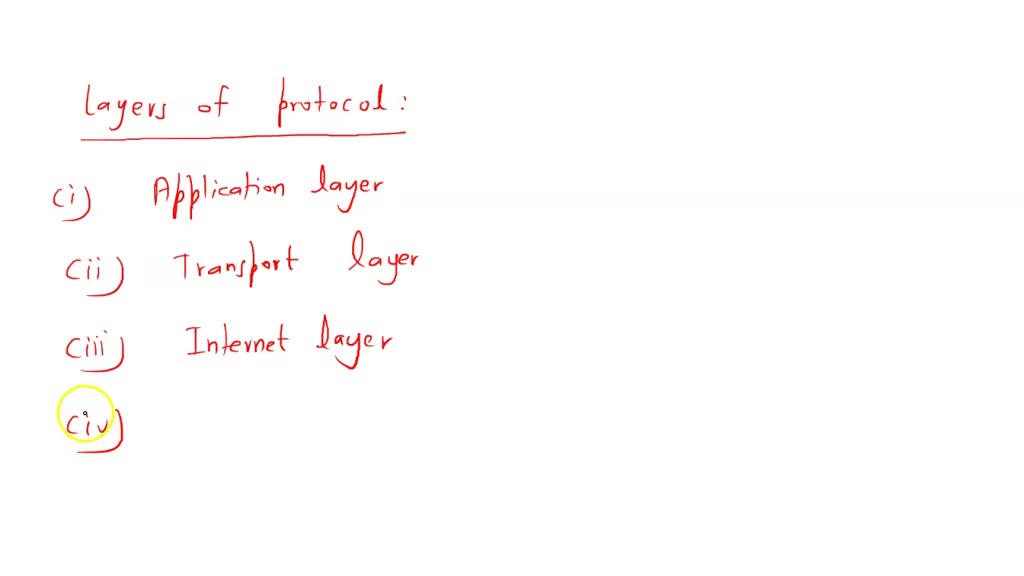 Layers of protocol:
(i) Application layer
(ii) Transport layer
(iii) Internet layer
(iv)